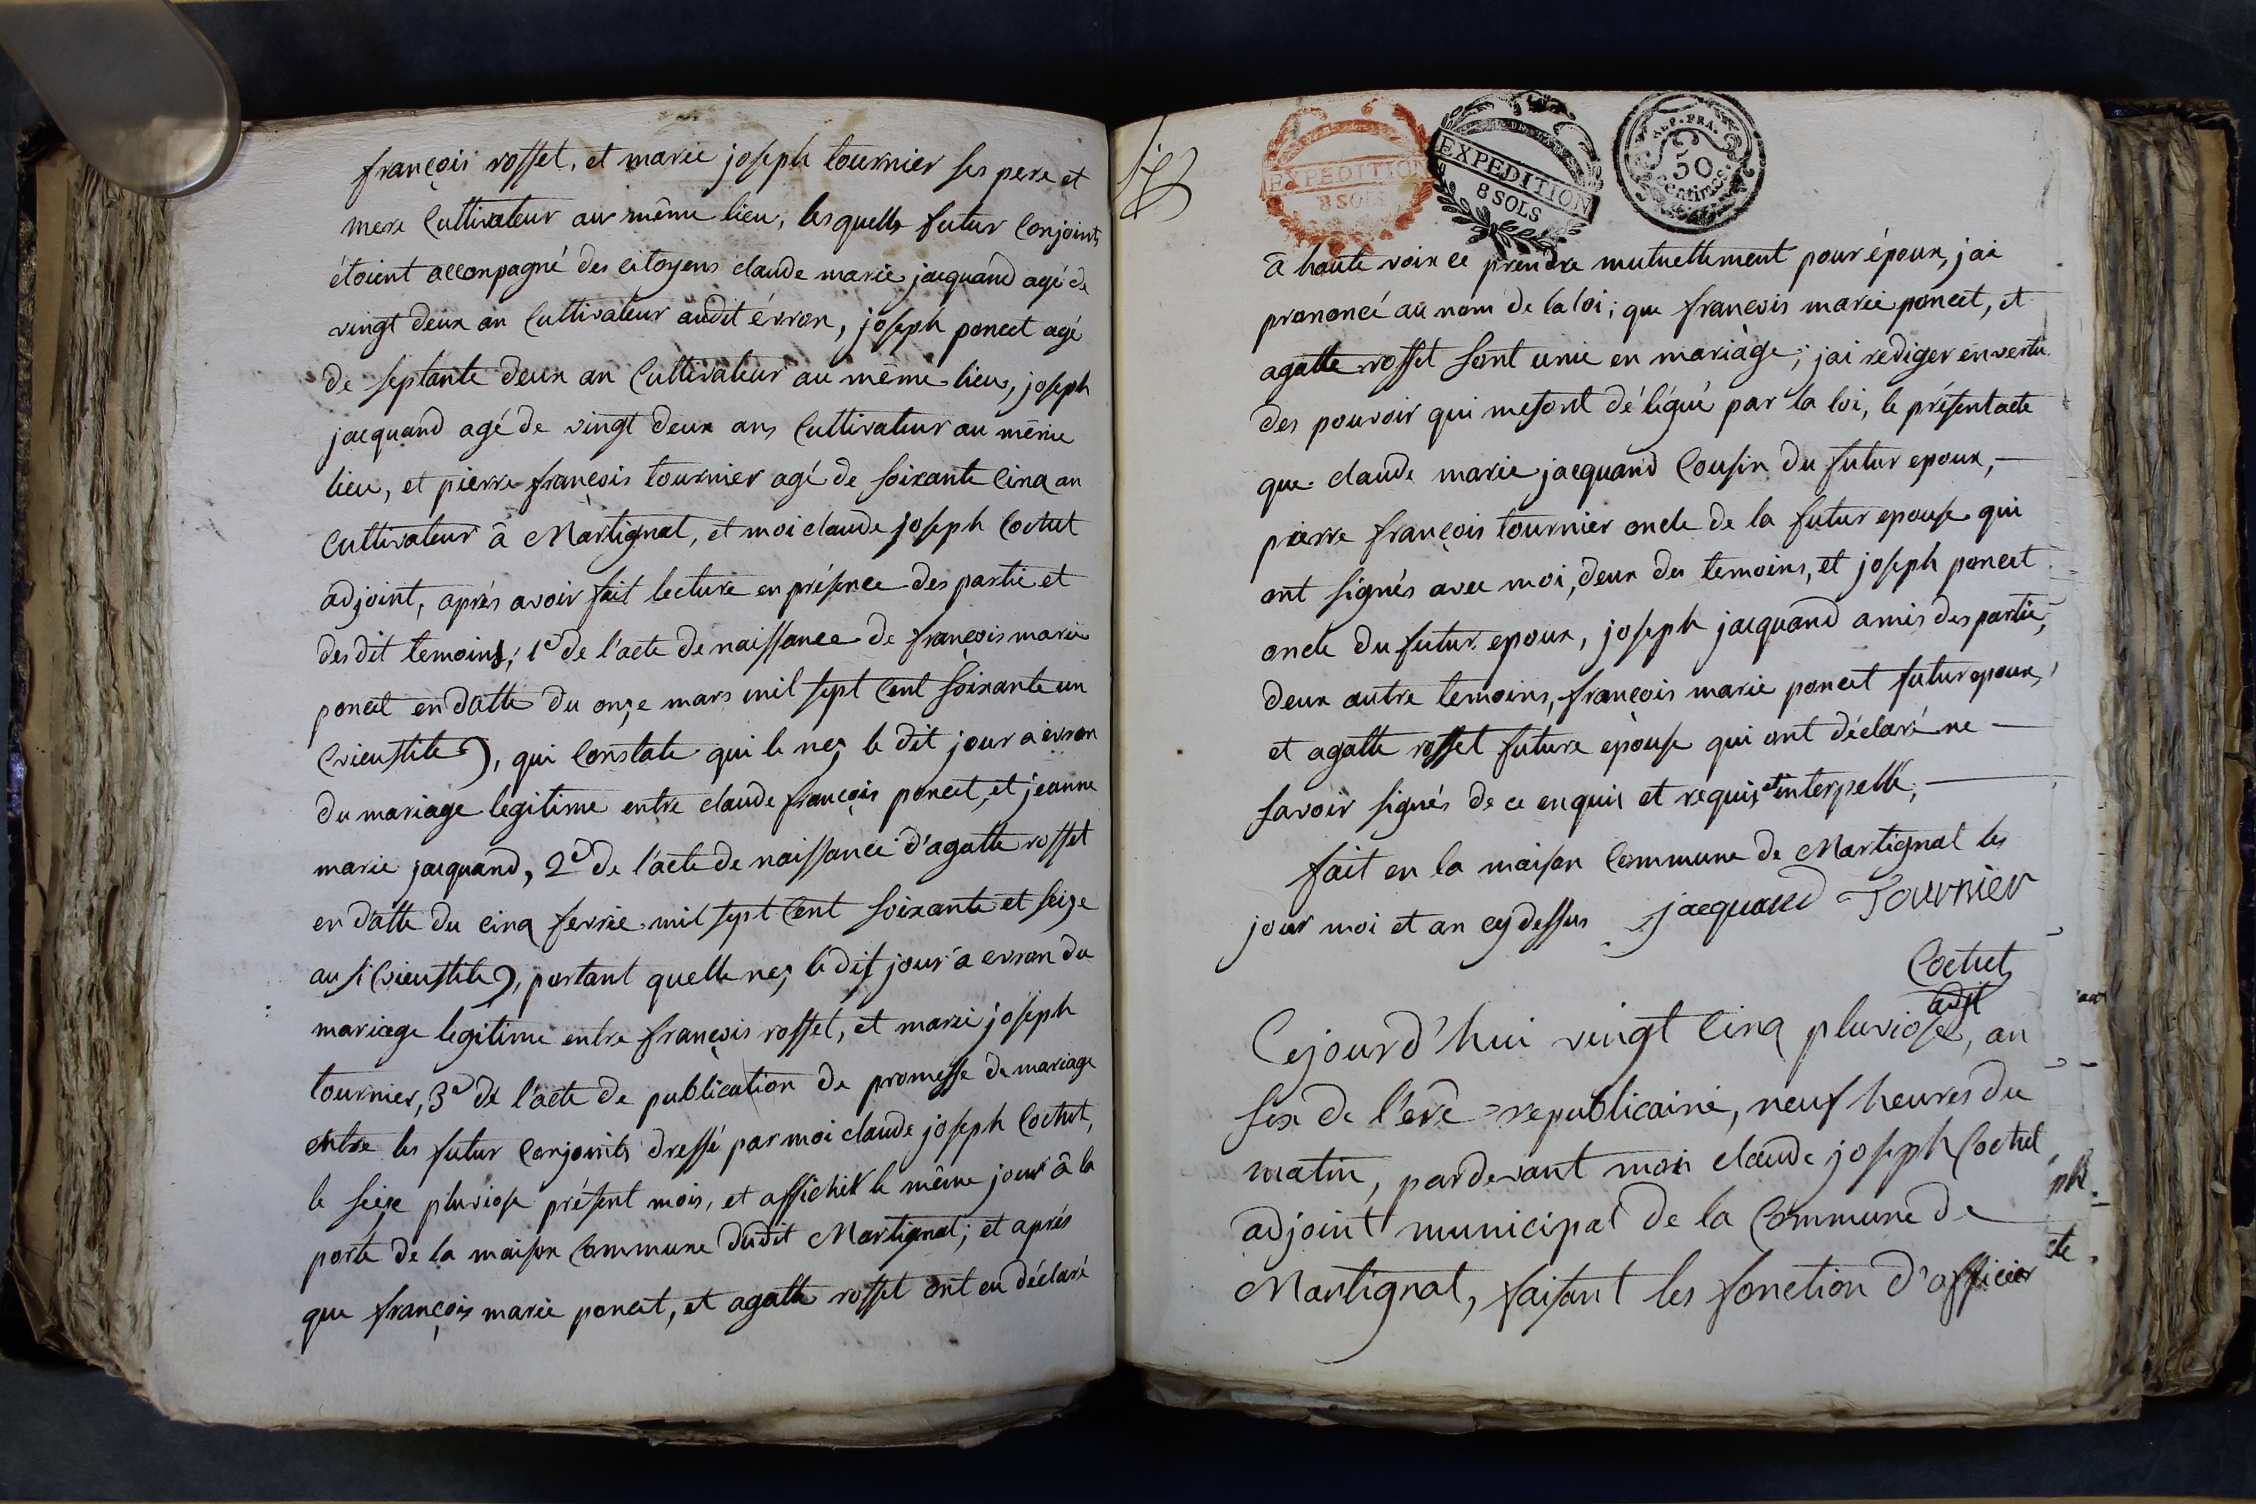 françois rosset, et marie joseph tournier ses pere et
mere Cultivateur au même lieu, lesquelle futur Conjoints
étoient acconpagné des citoyens claude marie jacquand agé de
vingt deux an Cultivateur audit évron, joseph poncet agé
de septante deux an Cultivateur au même lieu, joseph
jacquand agé de vingt deux ans Cultivateur au même
lieu, et pierre françois tournier agé de soixante cinq an
Cultivateur â Martignat, et moi claude joseph Coctut
adjoint, aprés avoir fait lecture en présence des partie et
des dit temoins; 1º de l'acte de naissance de françois marie
poncet en datte du onze mars mil sept Cent soixante un
(vieustile), qui Constate qui le nez le dit jour a evron
du mariage legitime entre claude françois poncet, et jeanne
marie jacquand, 2º de l'acte de naissance d'agatte rosset
en datte du cinq fevrie mil sept Cent soixante et seize
au s (vieustile), portant quelle nez le dit jour a evron du
mariage legitime entre françois rosset, et marie joseph
tournier, 3º de l'acte de publication de promesse de mariage
entre les futur Conjoints dressé par moi claude joseph Coctut,
le seize pluviose présent mois, et affichér le même jour â la
porte de la maison Commune dudit Martignat; et aprés
que françois marie poncet, et agatte rosset ont eu déclaré
EXPEDITION
8 SOLS
EXPEDITION
8 SOLS
REP. FRA.
50
Centimes
â haute voix ce prendre mutuellement pour époux, jai
prononcé au nom de la loi; que françois marie poncet, et
agatte rosset sont unie en mariàge; jai rediger en vertu
des pouvoir qui mesont délégué par la loi, le présent acte
que claude marie jacquand Cousin du futur epoux,
pierre françois tournier oncle de la futur epouse qui
ont signés avec moi, deux des temoins, et joseph poncet
oncle du futur epoux, joseph jacquand amis des partie,
deux autre temoins, françois marie poncet futur epoux,
et agatte rosset future epouse qui ont déclaré ne
savoir signés de ce enquis et requis et interpellé;
fait en la maison Commune de Martignat les
jour moi et an cy dessus jacquand Tournier
Coctut
adjt
Cejourd'hui vingt Cinq pluviose, an
six de l'ere republicaine, neuf heures du
matin, pardevant moi claude joseph Coctut
adjoint municipal de la Commune de
Martignat, faisant les fonction d'officier